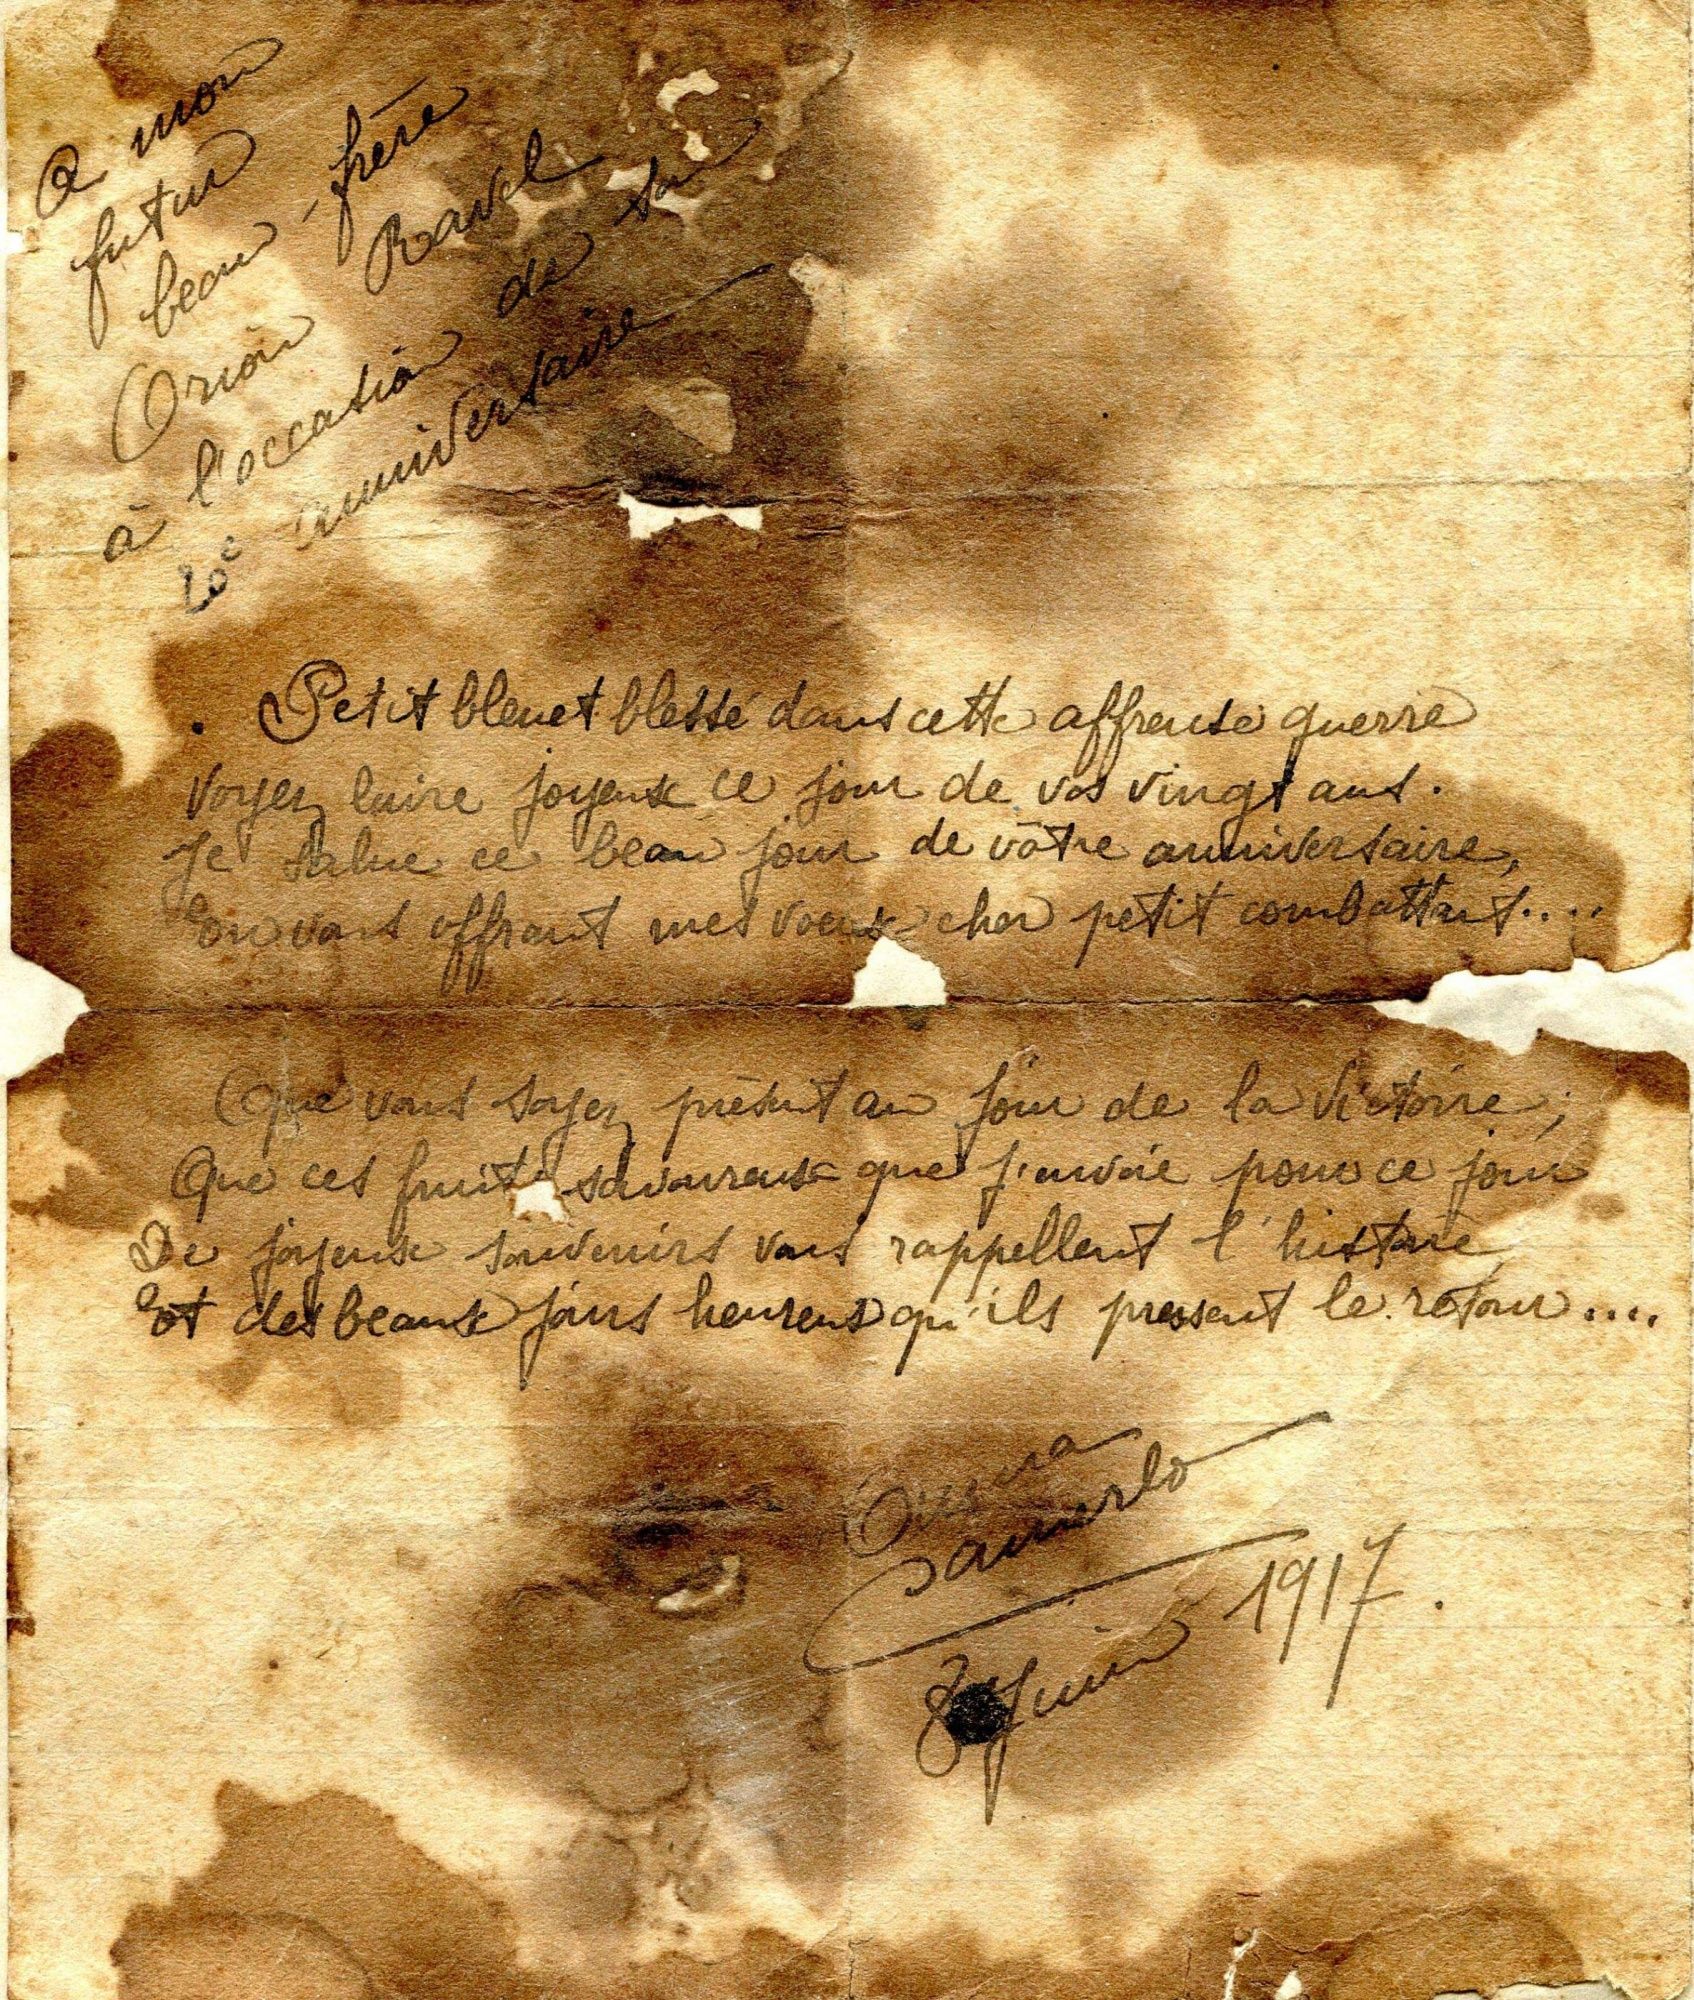 A mon
futur
beau-frère
Orion Ravel
à l'occasion de son
20e anniversaire
Petit bleuet blessé dans cette affreuse guerre
Voyez luire joyeux ce jour de vos vingt ans.
Je salue ce beau jour de vôtre anniversaire,
En vous offrant mes voeux cher petit combattant....
Que vous soyez présent au jour de la Victoire;
Que ces fruits savoureux que j'envoie pour ce jour
De joyeux souvenirs vous rappellent l'histoire
Et des beaux jours heureux qu'ils pressent le retour....
8 Juin 1917.